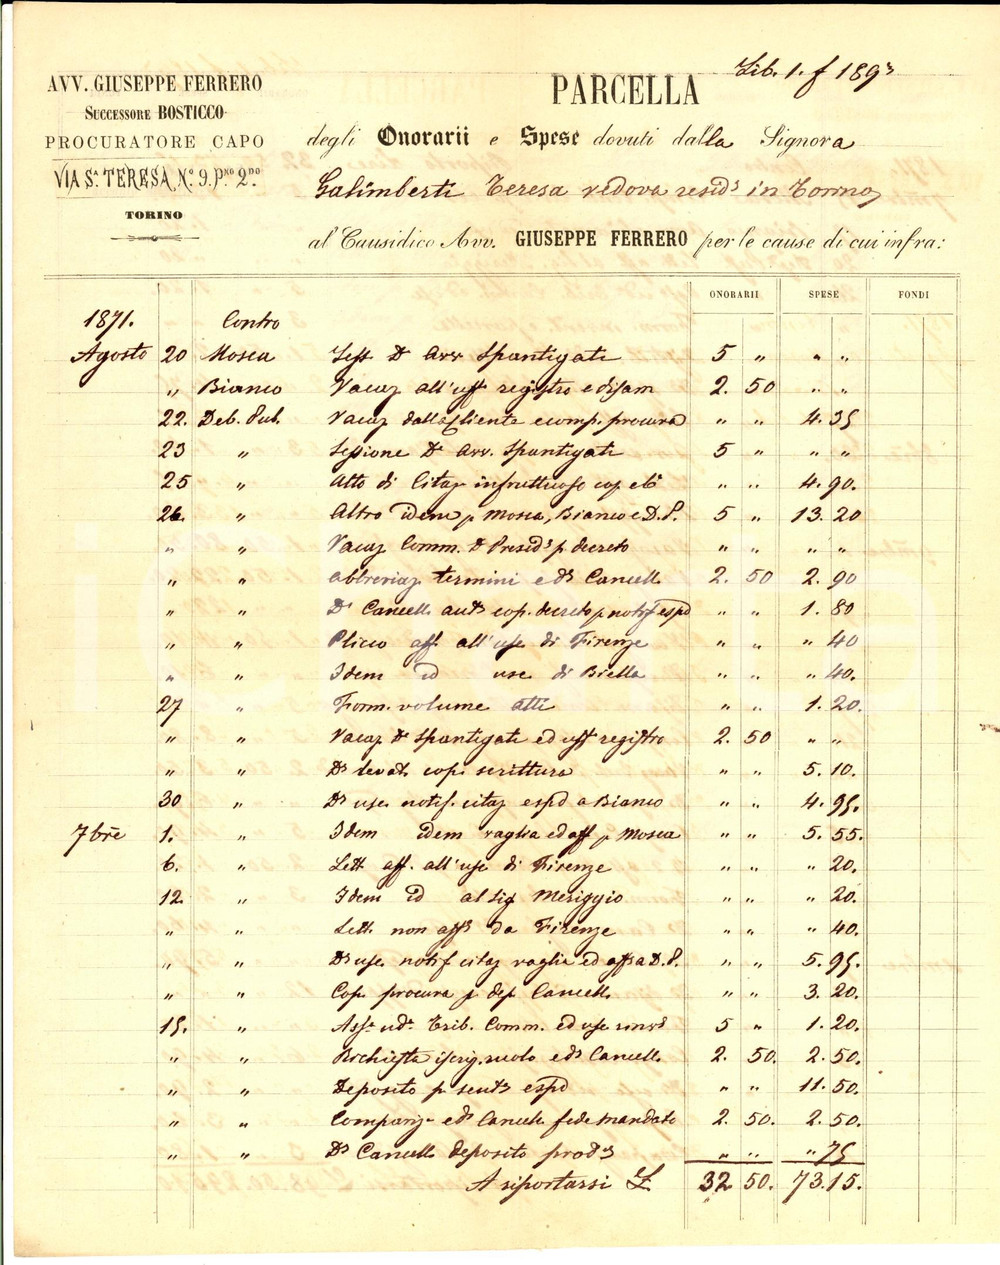 Lib. 1. f 1893
AVV. GIUSEPPE FERRERO
SUCCESSORE BOSTICCO
PROCURATORE CAPO
VIA S.A TERESA, N.o 9, P.NO 2.DO
TORINO
PARCELLA
degli Onorarii e Spese dovuti dalla Signora
Galimberti Teresa vedova resid.e in Torino
al Causidico Avv. GIUSEPPE FERRERO per le cause di cui infra:
ONORARII SPESE FONDI
1871. Contro
Agosto 20 Mosca Sess. D. Avv. Spantigati 5 " " "
" Bianco Vacaz all'uff registro e disam 2. 50 " "
22. Deb. Pub. Vacaz dalla Cliente e comp. procura " " 4. 35
23 " Sessione D. Avv. Spantigati 5 " " "
25 " Atto di Citaz infruttuoso cop. e " " 4. 90.
26. " Altro idem p Mosca, Bianco e D. P. 5 " 13. 20
" " Vacaz Comm. D. Presid.e p decreto " " " "
" " abbreviaz termini e d.o Cancell. 2. 50 2. 90
" " D. Cancell. cop. decreto p notif esp " " 1. 80
" " Plico aff. all'usc. di Firenze " " " 40
" " Idem id usc. di Biella " " " 40.
27 " Form. volume atti " " 1. 20.
" " Vacaz D. Spantigati ed uff registro 2. 50 " "
" " D. cop. scrittura " " 5. 10.
30 " D. usc. notif. citaz esp a Bianco " " 4. 95.
7bre 1. " Idem idem vaglia ed aff p Mosca " " 5. 55.
6. " Lett. aff. all'usc. di Firenze " " " 20.
12. " Idem id al Sig Meriggio " " " 20.
" " Lett. non aff. da Firenze " " " 40.
" " D. usc. notif citaz vaglia ed aff a D. P. " " 5. 95.
" " Cop. procura p dep. Cancell. " " 3. 20.
15. " Ass. ud. Trib. Comm. ed usc 5 " 1. 20.
" " Richiesta iscriz. ruolo e d.o Cancell. 2. 50. 2. 50.
" " Deposito p sent. esp " " 11. 50.
" " Compariz e d.o Cancell. fede mandato 2. 50. 2. 50.
" " D. Cancell. deposito prod. " " " 75
A riportarsi L. 32 50. 73. 15.